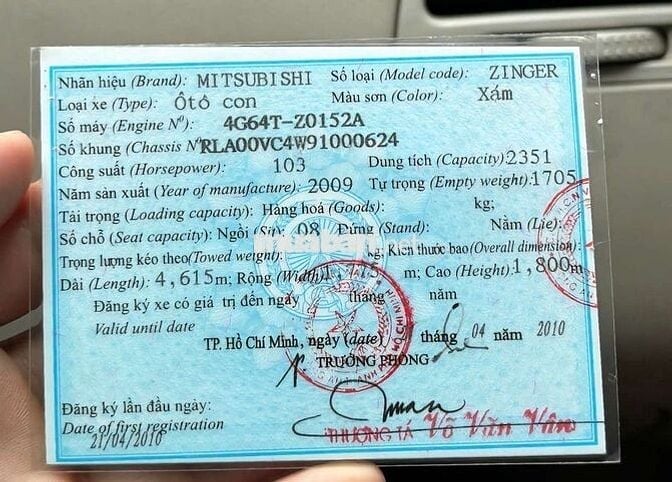 Nhãn hiệu (Brand): MITSUBISHI Số loại (Model code): ZINGER
Loại xe (Type): Ôtô con Màu sơn (Color): Xám
Số máy (Engine Nº): 4G64T-Z0152A
Số khung (Chassis Nº) RLA00VC4W91000624
Công suất (Horsepower): 103 Dung tích (Capacity) 2351
Năm sản xuất (Year of manufacture): 2009 Tự trọng (Empty weight): 1705
Tải trọng (Loading capacity): Hàng hoá (Goods): kg;
Số chỗ (Seat capacity): Ngồi (Sit): 08 Đứng (Stand): Nằm (Lie):
Trọng lượng kéo theo (Towed weight): kg, Kích thước bao (Overall dimension):
Dài (Length): 4,615m; Rộng (Width) m; Cao (Height) 1,800m
Đăng ký xe có giá trị đến ngày tháng năm
Valid until date
TP. Hồ Chí Minh, ngày (date) tháng 04 năm 2010
TRƯỞNG PHÒNG
Đăng ký lần đầu ngày:
Date of first registration
21/04/2010
THƯỢNG TÁ Võ Văn Vân